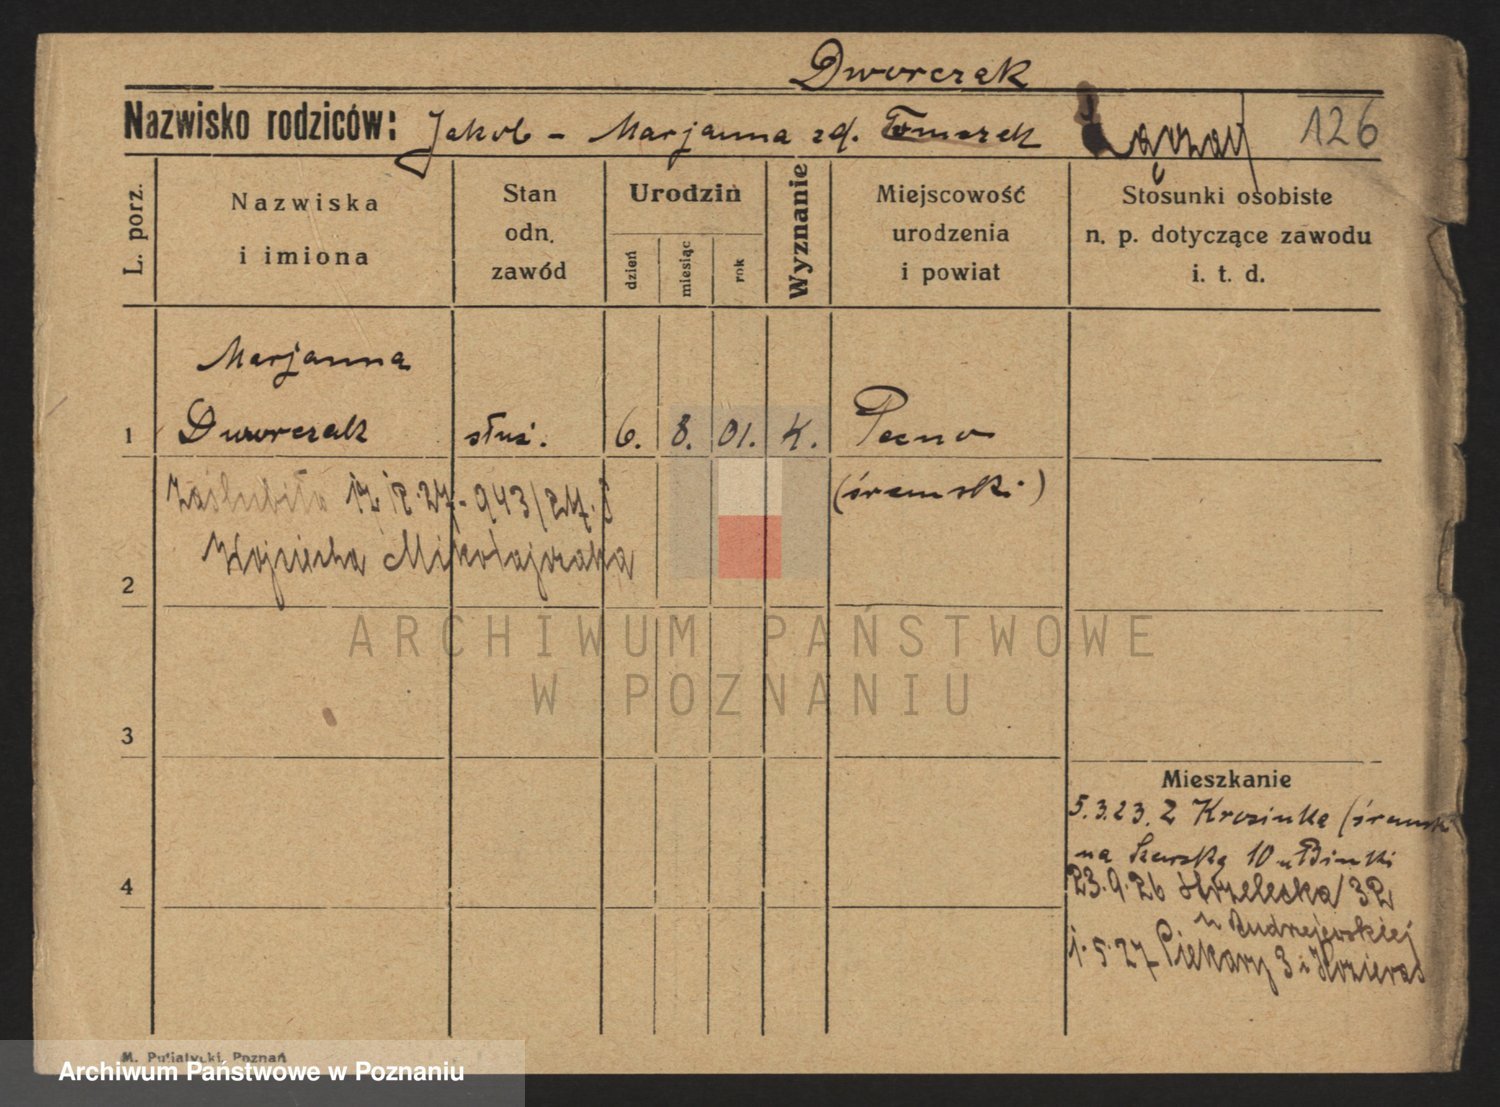 Dworczak
Nazwisko rodziców: Jakob - Marjanna zd. Tomczak 126
L. porz.
Nazwiska
i imiona
Stan
odn.
zawód
Urodzin
dzień
miesiąc
rok
Wyznanie
Miejscowość
urodzenia
i powiat
Stosunki osobiste
n. p. dotyczące zawodu
i. t. d.
Marjanna
1 Dworczak służ. 6. 8. 01. K. Pecno
(śremski)
zaślubiła 943/27.
Wojciecha Mikołajczaka
2
ARCHIWUM PAŃSTWOWE
W POZNANIU
3
Mieszkanie
5.3.23. Z Krosinka (śremski
na 10 u Binki
4
23.9.26 Strzelecka 32
u Andrzejewskiej
1.5.27 Piekary 3
M. Putiatycki, Poznań
Archiwum Państwowe w Poznaniu